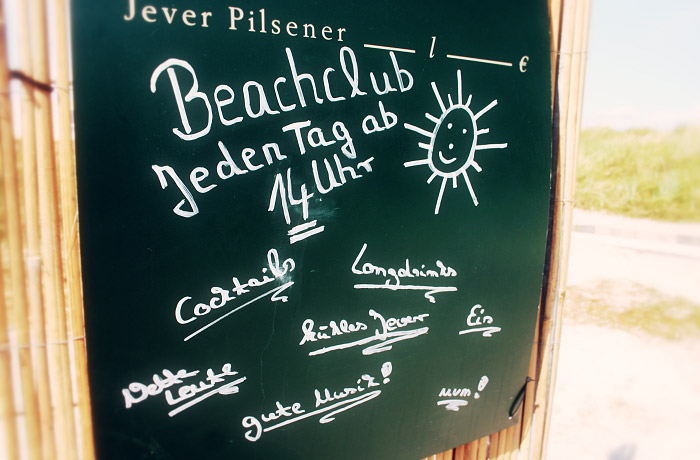 Jever Pilsener ___ l ___ €
Beachclub
Jeden Tag ab
14 Uhr
Cocktails
Longdrinks
kühles Jever
Eis
Nette
Leute
gute Musik!